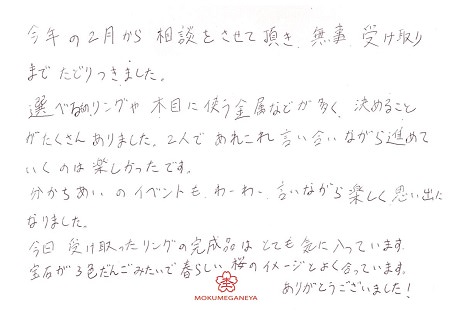 今年の2月から相談をさせて頂き、無事、受け取り
までたどりつきました。
選べるリングや木目に使う金属などが多く、決めること
がたくさんありました。2人であれこれ言い合いながら進めて
いくのは楽しかったです。
分かちあいのイベントも、わーわー、言いながら楽しく思い出に
なりました。
今日受け取ったリングの完成品はとても気に入っています。
宝石が3色だんごみたいで春らしい桜のイメージとよく合っています。
ありがとうございました!
MOKUMEGANEYA